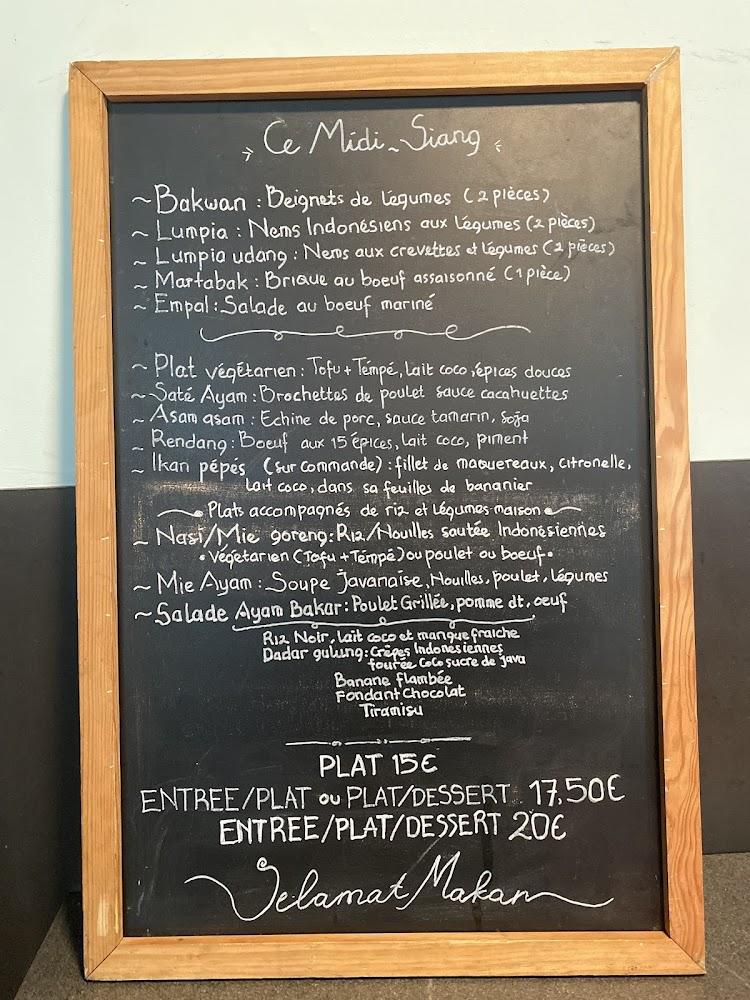 Ce Midi ~ Siang
~ Bakwan : Beignets de légumes (2 pièces)
~ Lumpia : Nems Indonésiens aux légumes (2 pièces)
~ Lumpia udang : Nems aux crevettes et légumes (2 pièces)
~ Martabak : Brique au boeuf assaisonné (1 pièce)
~ Empal : Salade au boeuf mariné
~ Plat végétarien : Tofu + Tempé, lait coco, épices douces
~ Saté Ayam : Brochettes de poulet sauce cacahuettes
~ Asam asam : Echine de porc, sauce tamarin, soja
~ Rendang : Boeuf aux 15 épices, lait coco, piment
~ Ikan pépés (sur commande) : fillet de maquereaux, citronelle,
lait coco, dans sa feuilles de bananier
Plats accompagnés de riz et légumes maison
~ Nasi/Mie goreng : Riz/Nouilles sautée Indonésiennes
• Végétarien (Tofu + Tempé) ou poulet ou boeuf •
~ Mie Ayam : Soupe Javanaise, Nouilles, poulet, légumes
~ Salade Ayam Bakar : Poulet Grillée, pomme dt, oeuf
Riz Noir, lait coco et mangue fraiche
Dadar gulung : Crêpes Indonesiennes
fourée coco sucre de java
Banane flambée
Fondant chocolat
Tiramisu
PLAT 15€
ENTREE/PLAT ou PLAT/DESSERT 17,50€
ENTREE/PLAT/DESSERT 20€
Selamat Makan